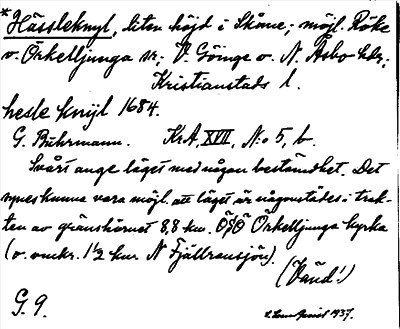 * Hässleknyl, liten höjd i Skåne; möjl. Röke
o. Örkelljunga sr; V. Göinge o. N. Åsbo hdr;
Kristianstads l.
hesle knyjl 1684.
G. Buhrmann. KrA XVII, N:o 5, b.
Svårt ange läget med någon bestämdhet. Det
synes kunna vara möjl. att läget är någonstädes i trak-
ten av gränshörnet 8,8 km. ÖSÖ Örkelljunga kyrka
(o. omkr. 1½ km N Fjällrensjön).
(Vänd!)
G. 9.
1937.